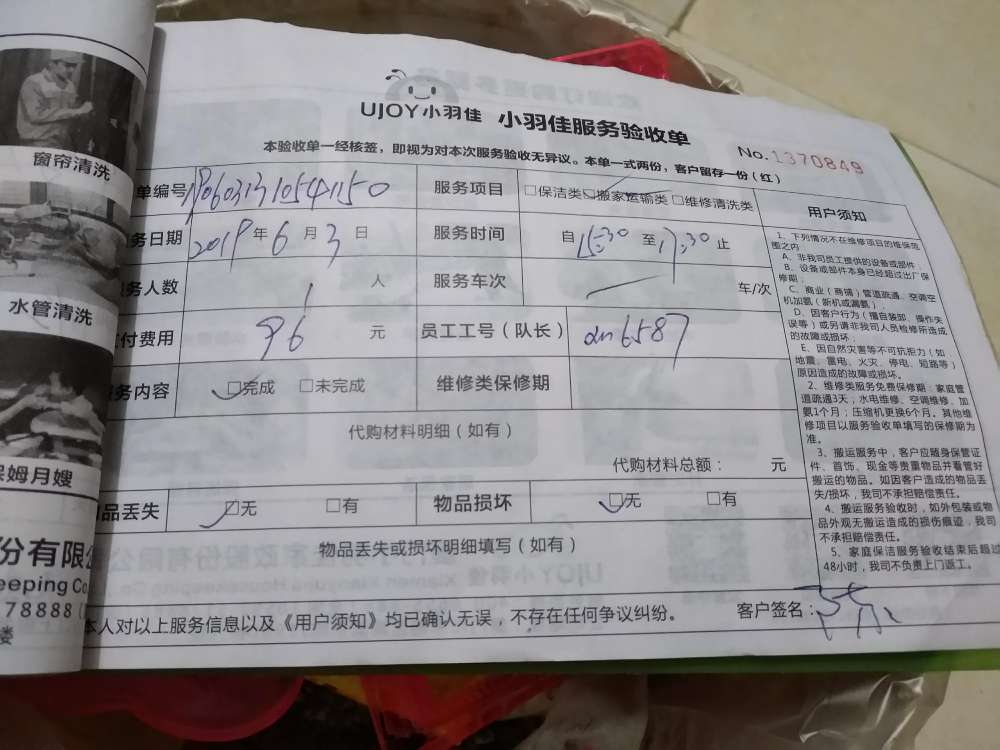 UJOY小羽佳 小羽佳服务验收单
本验收单一经核签，即视为对本次服务验收无异议。本单一式两份，客户留存一份（红）
No.1370849
单编号 服务项目 □保洁类 □搬家运输类 □维修清洗类
务日期 2019年6月3日 服务时间 自15:30至17:30止
务人数 1 人 服务车次 车/次
付费用 96 元 员工工号（队长） dn6587
务内容 □完成 □未完成 维修类保修期
代购材料明细（如有）
代购材料总额： 元
品丢失 □无 □有 物品损坏 □无 □有
物品丢失或损坏明细填写（如有）
本人对以上服务信息以及《用户须知》均已确认无误，不存在任何争议纠纷。
客户签名：
用户须知
1、下列情况不在维修项目的维保范
围之内
A、非我司员工提供的设备或部件；
B、设备或部件本身已经超过出厂保
修期；
C、商业（商铺）管道疏通、空调空
机加氨（新机或漏氨）
D、因客户行为（擅自装卸 操作失
误等）或另请非我司人员检修所造成
的故障或损坏；
E、因自然灾害等不可抗拒力（如
地震、雷电、火灾、停电、短路等）
原因造成的故障或损坏。
2、维修类服务免费保修期：家庭管
道疏通3天；水电维修、空调维修、加
氨1个月；压缩机更换6个月。其他维
修项目以服务验收单填写的保修期为
准。
3、搬运服务中，客户应随身保管证
件、首饰、现金等贵重物品并看管好
搬运的物品。如因客户造成的物品丢
失/损坏，我司不承担赔偿责任。
4、搬运服务验收时，如外包装或物
品外观无搬运造成的损伤痕迹，我司
不承担赔偿责任。
5、家庭保洁服务验收结束后超过
48小时，我司不负责上门返工。
窗帘清洗
水管清洗
保姆月嫂
份有限公
eeping Co
78888
楼